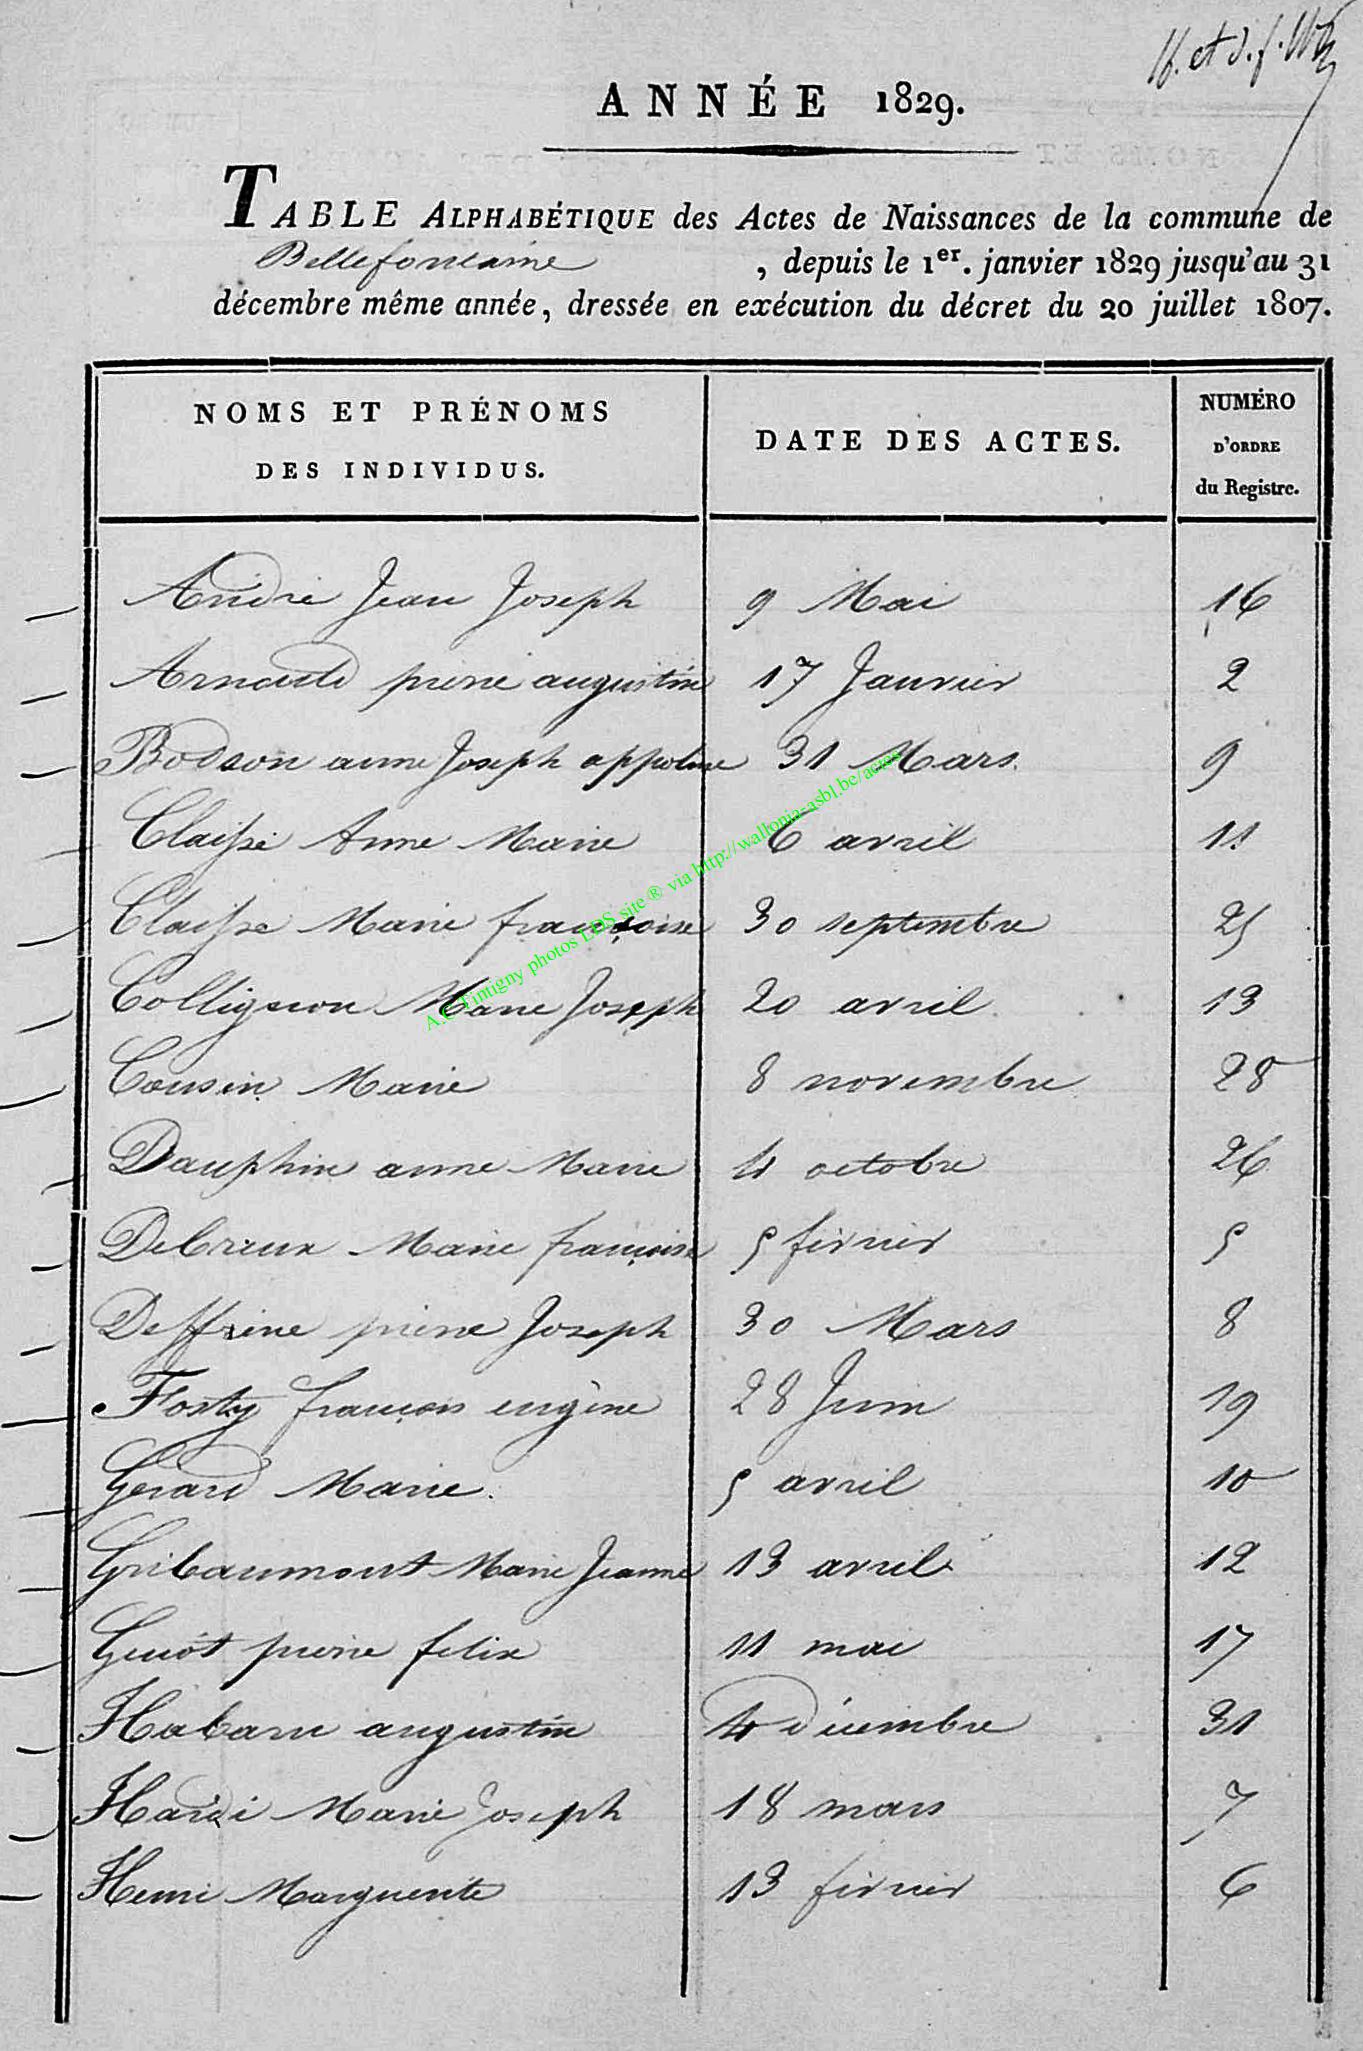 ANNÉE 1829.
TABLE ALPHABÉTIQUE des Actes de Naissances de la commune de
Bellefontaine , depuis le 1er. janvier 1829 jusqu'au 31
décembre même année, dressée en exécution du décret du 20 juillet 1807.
NOMS ET PRÉNOMS DES INDIVIDUS. DATE DES ACTES. NUMÉRO D'ORDRE du Registre.
André Jean Joseph 9 Mai 16
Arnould pierre augustin 17 Janvier 2
Bodson anne Joseph appoline 31 Mars. 9
Claisse Anne Marie 6 avril 11
Claisse Marie françoise 30 septembre 25
Collignon Marie Joseph 20 avril 13
Cousin Marie 8 novembre 28
Dauphin anne Marie 4 octobre 26
Debreux Marie françoise 5 février 5
Deffrène pierre Joseph 30 Mars 8
Fosty françois eugène 28 Juin 19
Gerard Marie. 5 avril 10
Gribaumont Marie Jeanne 13 avril 12
Guiot pierre felix 11 mai 17
Habaru augustin 4 décembre 31
Hardi Marie Joseph 18 mars 7
Henri Marguerite 13 février 6
A.C Tintigny photos LDS site ® via http://wallonia-asbl.be/actes